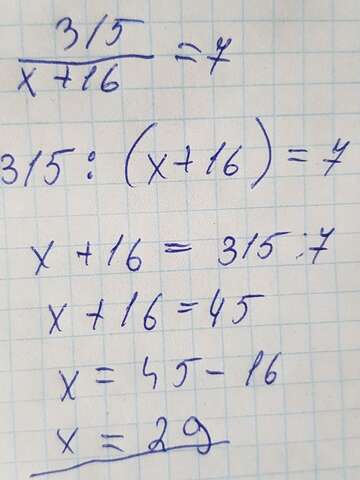 315
x+16 = 7
315 : (x+16) = 7
x + 16 = 315 : 7
x + 16 = 45
x = 45 - 16
x = 29